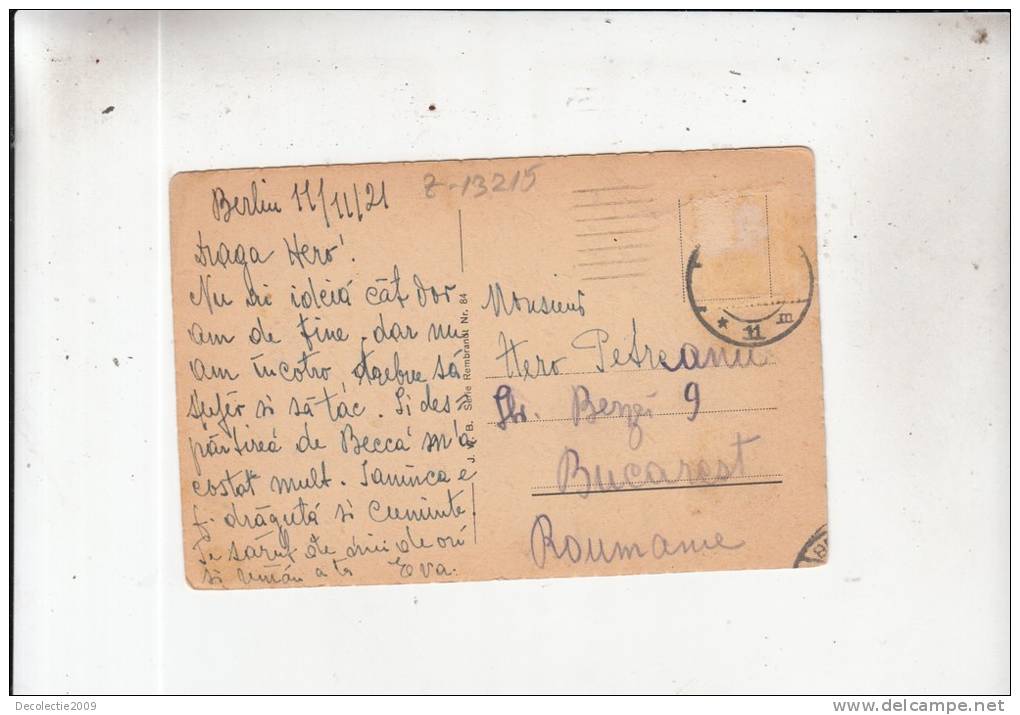 Z-13215
Berlin 11/11/21
Draga Hero!
Nu ai ideiă cât dor
am de tine, dar nu
am încotro, trebue să
sufăr si să tac. Si des-
părtirea de Becca m'a
costat mult. Janinca e
f. drăgută si cuminte
Te sărut de mii de ori
si rămân a ta Eva.
J. W. B. Serie Rembrandt Nr. 84
Monsieur
Hero Petreanu
Str. 9
Bucarest
Roumanie
* 11 m
Decolectie2009
delcampe.net